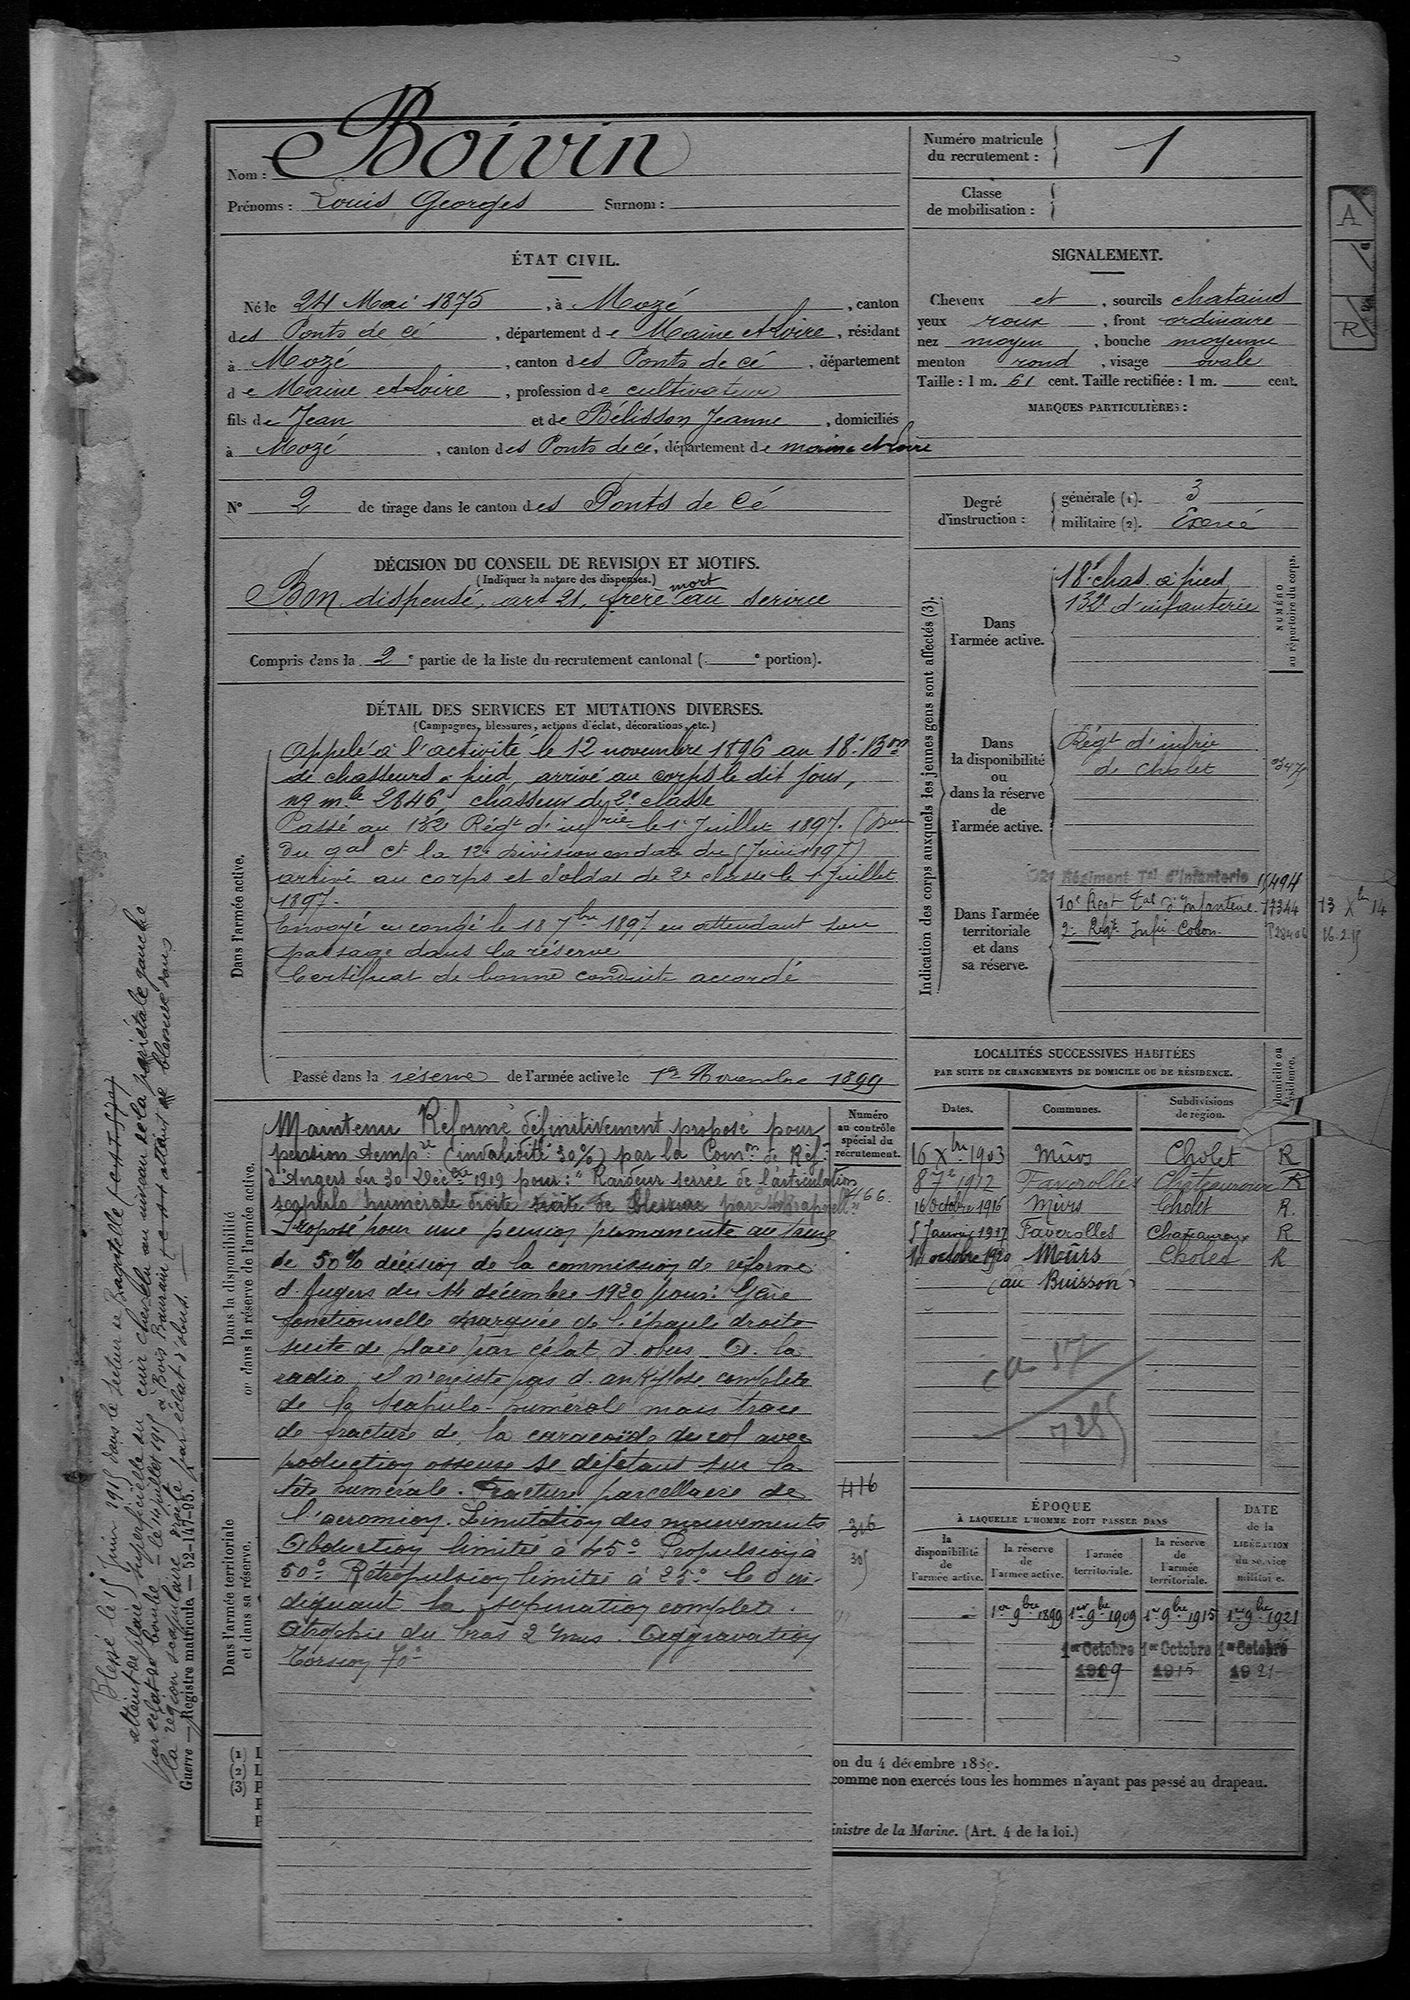 Nom : Boivin
Prénoms : Louis Georges Surnom :
Numéro matricule du recrutement : 1
Classe de mobilisation :
A
R
ÉTAT CIVIL.
Né le 24 Mai 1875, à Mozé, canton
des Ponts de cé, département de Maine et Loire, résidant
à Mozé, canton des Ponts de cé, département
de Maine et Loire, profession de cultivateur
fils de Jean et de Bélisson Jeanne, domiciliés
à Mozé, canton des Ponts de cé, département de maine et Loire
N° 2 de tirage dans le canton des Ponts de Cé
SIGNALEMENT.
Cheveux et, sourcils chatains
yeux roux, front ordinaire
nez moyen, bouche moyenne
menton rond, visage ovale
Taille : 1 m. 61 cent. Taille rectifiée : 1 m. cent.
MARQUES PARTICULIÈRES :
Degré d'instruction :
générale (1). 3
militaire (2). Exercé
DÉCISION DU CONSEIL DE REVISION ET MOTIFS.
(Indiquer la nature des dispenses.)
Bon dispensé, art 21, frère mort au service
Compris dans la 2e partie de la liste du recrutement cantonal ( e portion).
DÉTAIL DES SERVICES ET MUTATIONS DIVERSES.
(Campagnes, blessures, actions d'éclat, décorations, etc.)
Dans l'armée active.
Appelé à l'activité le 12 novembre 1896 au 18e Bon
de chasseurs à pied, arrivé au corps le dit jour,
no mle 2846, chasseur de 2e classe
Passé au 132 Régt d'infrie le 1er Juillet 1897.
du gal Ct la 12e division en date du Juin 1897)
arrivé au corps et Soldat de 2e classe le 1 Juillet
1897.
Envoyé en congé le 18 7bre 1897 en attendant son
passage dans la réserve
Certificat de bonne conduite accordé
Passé dans la réserve de l'armée active le 1er Novembre 1899
Indication des corps auxquels les jeunes gens sont affectés (3).
NUMÉRO au répertoire du corps.
Dans l'armée active.
18e chas. à pied
132e d'infanterie
Dans la disponibilité ou dans la réserve de l'armée active.
Régt d'infrie
de Cholet
Dans l'armée territoriale et dans sa réserve.
Régiment Tal d'Infanterie
10e Regt Tal d'Infanterie 17344 13 Xbre 14
2e Regt Infie Colon. 16.2.15
LOCALITÉS SUCCESSIVES HABITÉES
PAR SUITE DE CHANGEMENTS DE DOMICILE OU DE RÉSIDENCE.
Dates. Communes. Subdivisions de région. domicile ou résidence.
16 Xbre 1903 Mûrs Cholet R
8 1912 Faverolles Châteauroux R
16 octobre 1916 Mûrs Cholet R.
5 Janvier 1917 Faverolles Chateauroux R
14 octobre 1920 Meurs Cholet R
(au Buisson)
Dans la disponibilité ou dans la réserve de l'armée active.
Numéro au contrôle spécial du recrutement.
Maintenu Réformé définitivement proposé pour
pension tempre (invalidité 30%) par la Comon de Réf
d'Angers du 30 Décbre 1919 pour : "Raideur serrée de l'articulation
scapulo humérale droite
Proposé pour une pension permanente au taux
de 50% décision de la commission de réforme
d'Angers du 14 décembre 1920 pour : Gêne
fonctionnelle marquée de l'épaule droite
suite de plaie par éclat d'obus. A la
radio, il n'existe pas d'ankylose complète
de la scapulo-humérale mais trace
de fracture de la coracoïde du col avec
production osseuse se déjetant sur la
tête humérale. Fracture parcellaire de
l'acromion. Limitation des mouvements
Abduction limitée à 45° Propulsion à
50° Rétropulsion limitée à 25°
supination complète.
Atrophie du bras 2 cms. Aggravation
Torsion 70°
416
316
Dans l'armée territoriale et dans sa réserve.
ÉPOQUE
À LAQUELLE L'HOMME DOIT PASSER DANS
la disponibilité de l'armée active. la réserve de l'armée active. l'armée territoriale. la réserve de l'armée territoriale. DATE de la LIBÉRATION du service militaire.
1er 9bre 1899 1er 9bre 1909 1er 9bre 1915 1er 9bre 1921
1er Octobre 1909 1er Octobre 1915 1er Octobre 1921
(1)
(2)
(3)
on du 4 décembre 1889.
comme non exercés tous les hommes n'ayant pas passé au drapeau.
inistre de la Marine. (Art. 4 de la loi.)
Blessé le 15 Juin 1915 dans le secteur de Bagatelle
atteint de plaie superficielle du cuir chevelu au niveau de la pariétale gauche
par éclat de bombe - le 14 juillet 1915 à Bois Baurain atteint de blessure dans
la région scapulaire droite par éclat d'obus.
Guerre — Registre matricule — 52-147-95.